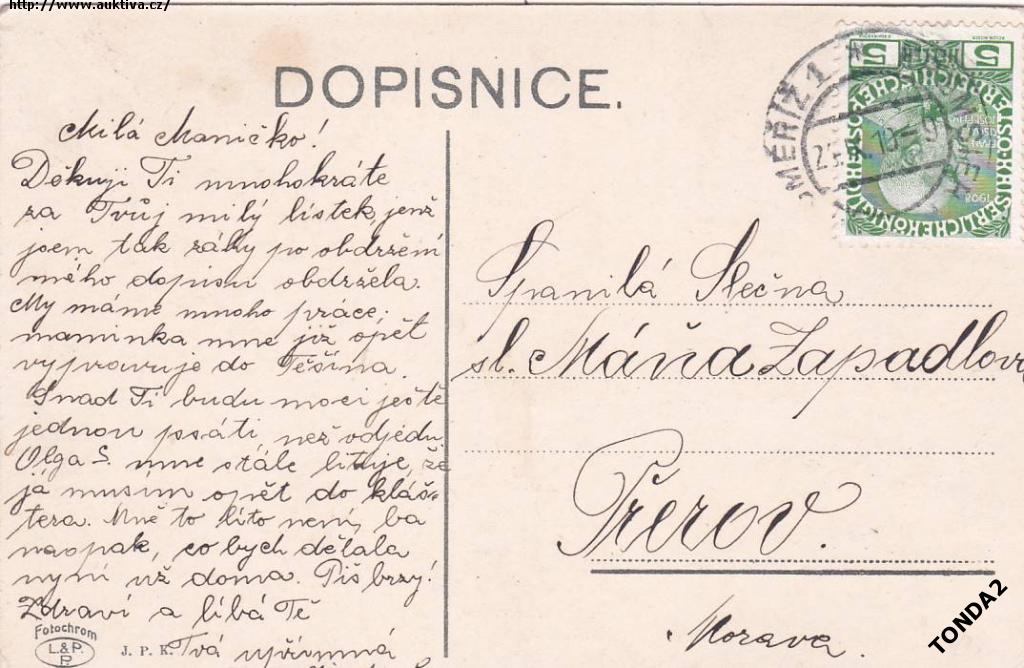 http://www.auktiva.cz/
DOPISNICE.
Milá Maničko!
Děkuji Ti mnohokráte
za Tvůj milý lístek, jenž
jsem tak záhy po obdržení
mého dopisu obdržela.
My máme mnoho práce,
maminka mne již opět
vypravuje do Těšína.
Snad Ti budu moci ještě
jednou psáti, než odjedu.
Olga S. mne stále lituje, že
já musím opět do kláš-
tera. Mně to líto není, ba
naopak, co bych dělala
nyní už doma. Piš brzy!
Zdraví a líbá Tě
Tvá upřímná
Fotochrom
L.&P.
P.
J. P. K.
MĚŘÍŽ 1
5
5
1908
Spanilá Slečna
sl. Máňa Zapadlova
Přerov.
Morava.
TONDA2